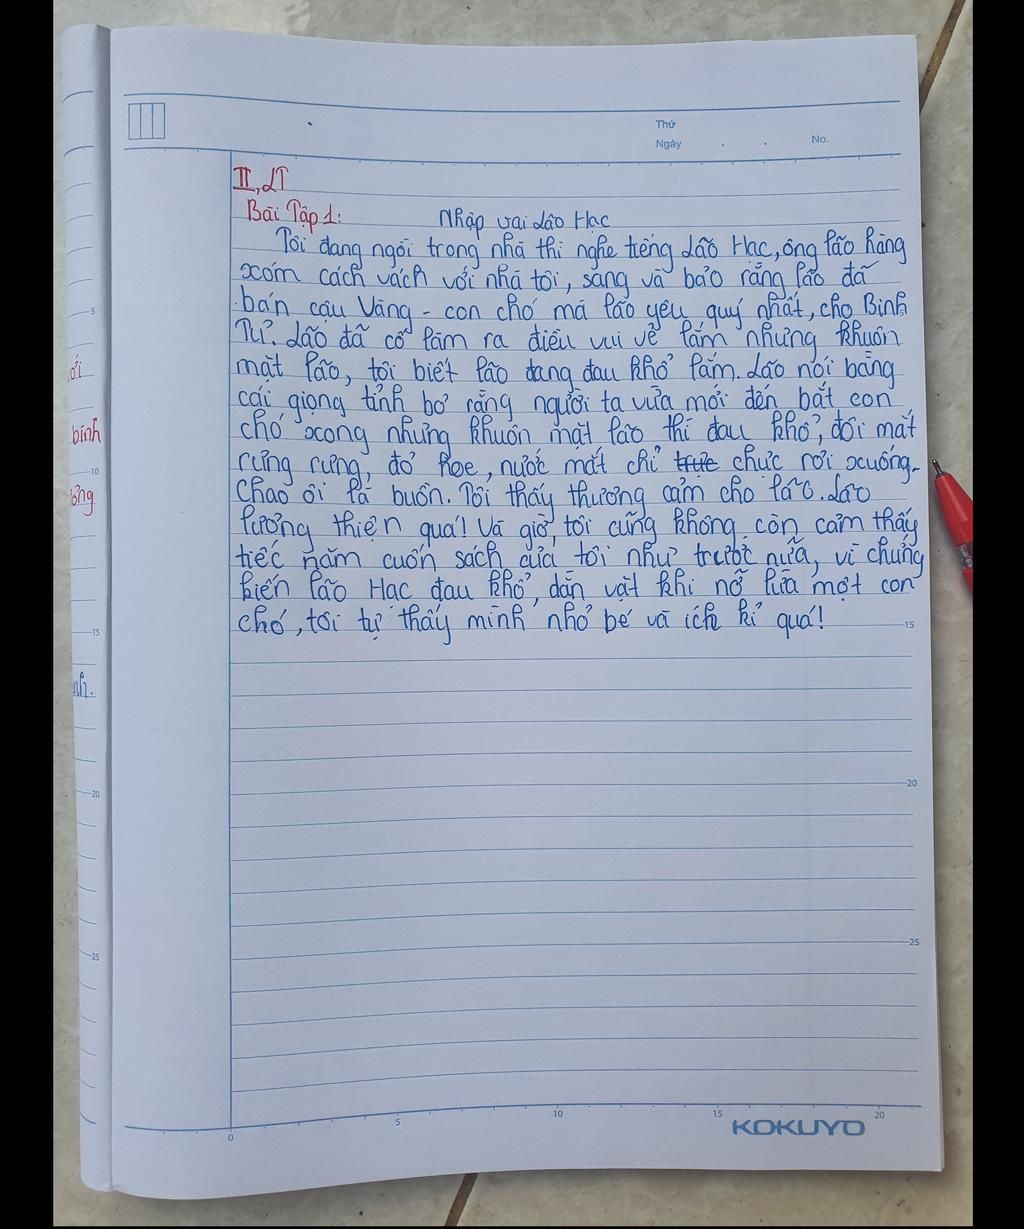 Thứ
Ngày . . No.
II, LT
Bài Tập 1: Nhập vai Lão Hạc
Tôi đang ngồi trong nhà thì nghe tiếng Lão Hạc, ông lão hàng
xóm cách vách với nhà tôi, sang và bảo rằng lão đã
bán cậu Vàng - con chó mà lão yêu quý nhất, cho Binh
Tư. Lão đã cố làm ra điều vui vẻ lắm nhưng khuôn
mặt lão, tôi biết lão đang đau khổ lắm. Lão nói bằng
cái giọng tỉnh bơ rằng người ta vừa mới đến bắt con
chó xong nhưng khuôn mặt lão thì đau khổ, đôi mắt
rưng rưng, đỏ hoe, nước mắt chỉ trực chực rơi xuống.
Chao ôi là buồn. Tôi thấy thương cảm cho lão. Lão
lương thiện quá! Và giờ, tôi cũng không còn cảm thấy
tiếc năm cuốn sách của tôi như trước nữa, vì chứng
kiến lão Hạc đau khổ, dằn vặt khi nỡ lừa một con
chó, tôi tự thấy mình nhỏ bé và ích kỉ quá!
bình
nh.
5
10
15
20
25
15
20
25
0 5 10 15 20
KOKUYO